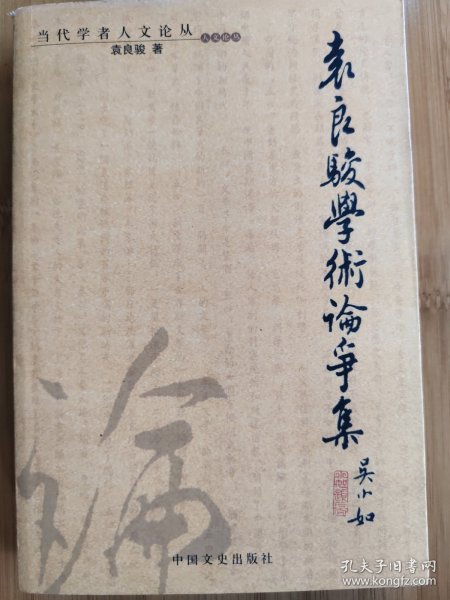 当代学者人文论丛
人文论丛
袁良骏 著
袁良駿學術論爭集
吴小如
論
中国文史出版社
孔夫子旧书网
www.kongfz.com